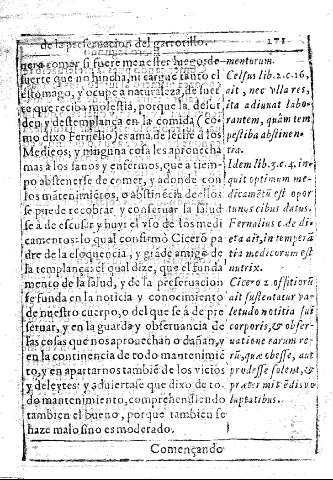 de la preseruacion del garrotillo. 171
pera comer si fuere menester luego, de
fuerte que no hincha, ni cargue tanto el
estomago, y ocupe a naturaleza, de suer
te que reciba molestia, porque la desor
den y destemplança en la comida (co
mo dixo Fernelio) es ama de leche a los
Medicos, y ninguna cosa les aprouecha
mas a los sanos y enfermos, que a tiem-
po abstenerse de comer, y adonde con
los mantenimiētos, o abstinēcia de ellos
se puede recobrar, y conseruar la salud
se à de escusar y huyr el vso de los medi
camentos: lo qual confirmò Ciceró pa
dre de la eloquencia, y gráde amigo de
la templança: el qual dize, que el funda
mento de la salud, y de la preseruacion
se funda en la noticia y conocimiento
de nuestro cuerpo, o del que se à de pre
seruar, y en la guarda y obseruancia de
las cosas que nos aprouechan o dañan, y
en la continencia de todo mantenimiē
to, y en apartarnos tambiē de los vicios
y deleytes: y aduiertase que dixo de to-
do mantenimiento, comprehendiendo
tambien el bueno, porque tambien se
haze malo sino es moderado.
mentorum.
Celsus lib. 2. c. 16,
ait, nec vlla res,
ita adiuuat labo-
rantem, quàm tem
pestiba abstinen-
tia.
Idem lib. 3. c. 4. in-
quit optimum me-
dicamētū est opor
tunus cibus datus.
Fernalius c. de di-
eta ait, in temperā
tia medicorum est
nutrix.
Cicero 2. offitiorū
ait sustentatur va-
letudo notitia sui
corporis, & obser-
uatione earum re-
rū, quæ obesse, aut
prodesse solent, &
præter mitēdis vo
luptatibus.
Començando